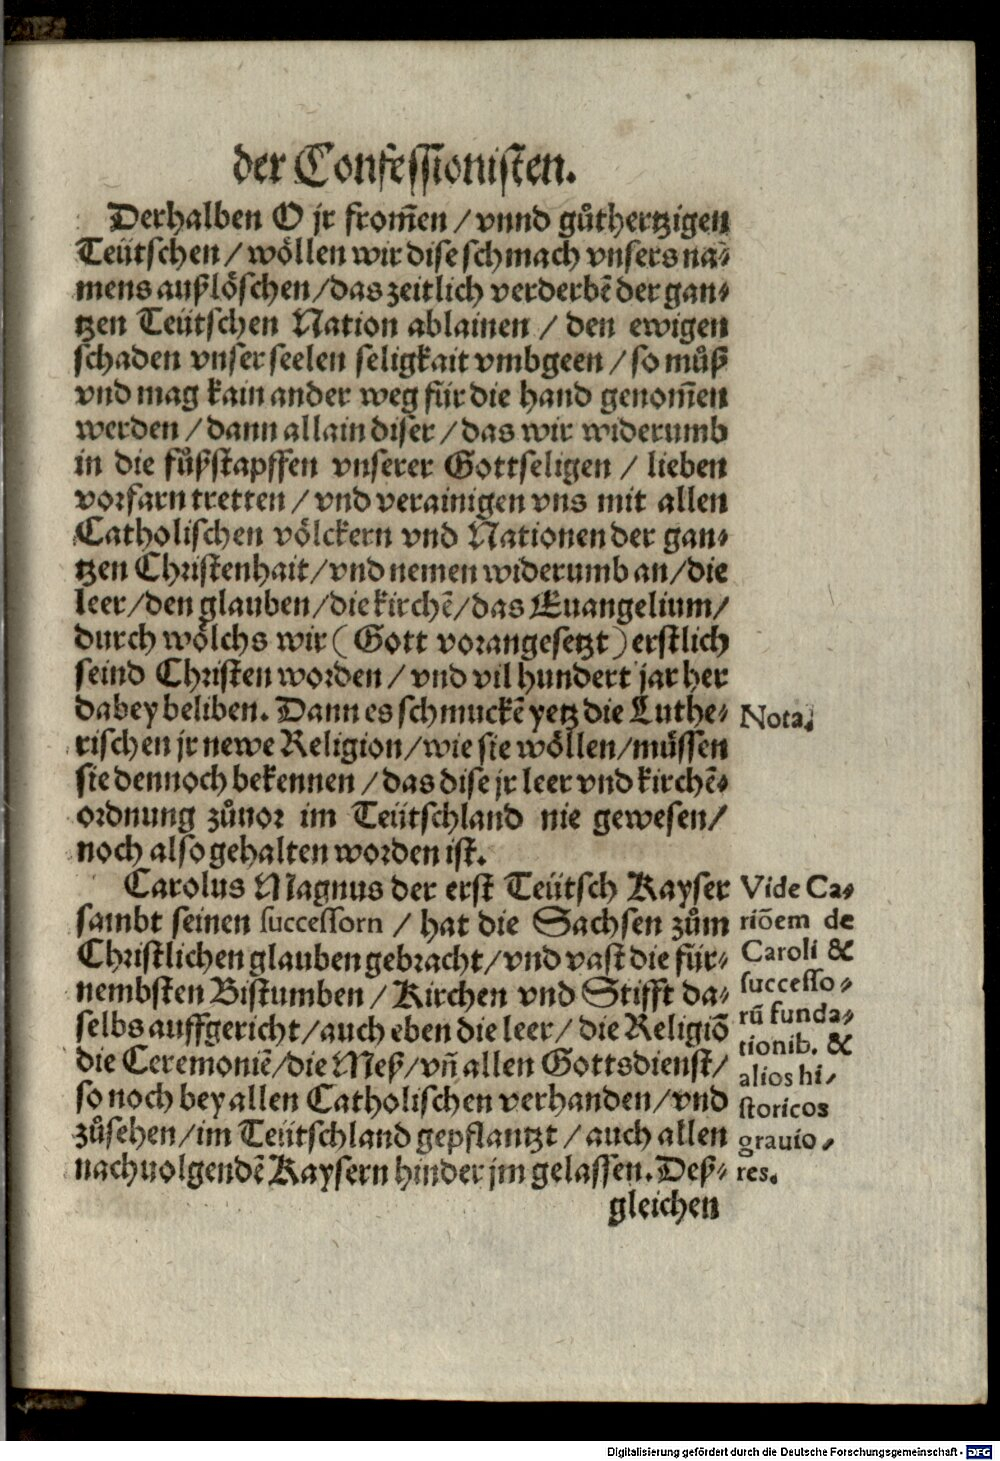 der Confessionisten.
Derhalben O jr from̃en / vnnd gůthertzigen
Teütschen / wöllen wir dise schmach vnsers na-
mens außlöschen / das zeitlich verderbẽ der gan-
tzen Teütschen Nation ablainen / den ewigen
schaden vnser seelen seligkait vmbgeen / so můß
vnd mag kain ander weg für die hand genom̃en
werden / dann allain diser / das wir widerumb
in die fůßstapffen vnserer Gottseligen / lieben
vorfarn tretten / vnd verainigen vns mit allen
Catholischen völckern vnd Nationen der gan-
tzen Christenhait / vnd nemen widerumb an / die
leer / den glauben / die kirchẽ / das Euangelium /
durch wölchs wir ( Gott vorangesetzt ) erstlich
seind Christen worden / vnd vil hundert jar her
dabey beliben. Dann es schmuckẽ yetz die Luthe-
rischen jr newe Religion / wie sie wöllen / müssen
sie dennoch bekennen / das dise jr leer vnd kirchẽ-
ordnung zůuor im Teütschland nie gewesen /
noch also gehalten worden ist.
Nota.
Carolus Magnus der erst Teütsch Kayser
sambt seinen successorn / hat die Sachsen zům
Christlichen glauben gebracht / vnd vast die für-
nembsten Bistumben / Kirchen vnd Stifft da-
selbs auffgericht / auch eben die leer / die Religiõ
die Ceremoniẽ / die Meß / vñ allen Gottsdienst /
so noch bey allen Catholischen verhanden / vnd
zůsehen / im Teütschland gepflantzt / auch allen
nachuolgendẽ Kaysern hinder jm gelassen. Deß-
gleichen
Vide Ca-
riõem de
Caroli &
successo-
rũ funda-
tionib. &
alios hi-
storicos
grauio-
res.
Digitalisierung gefördert durch die Deutsche Forschungsgemeinschaft - DFG